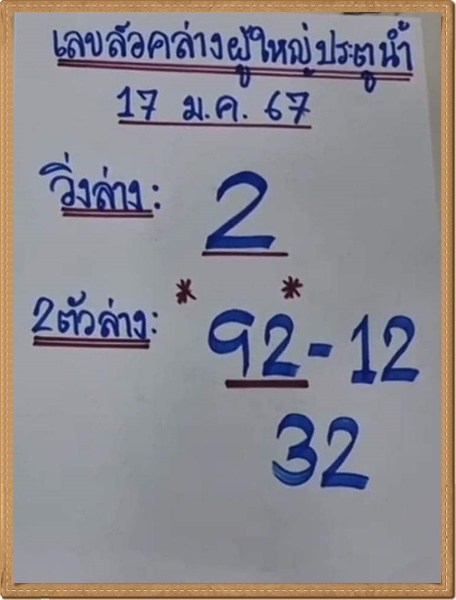 เลขล็อคล่างผู้ใหญ่ประตูน้ำ
17 ม.ค. 67
วิ่งล่าง: 2
2ตัวล่าง: * 92 * - 12
32